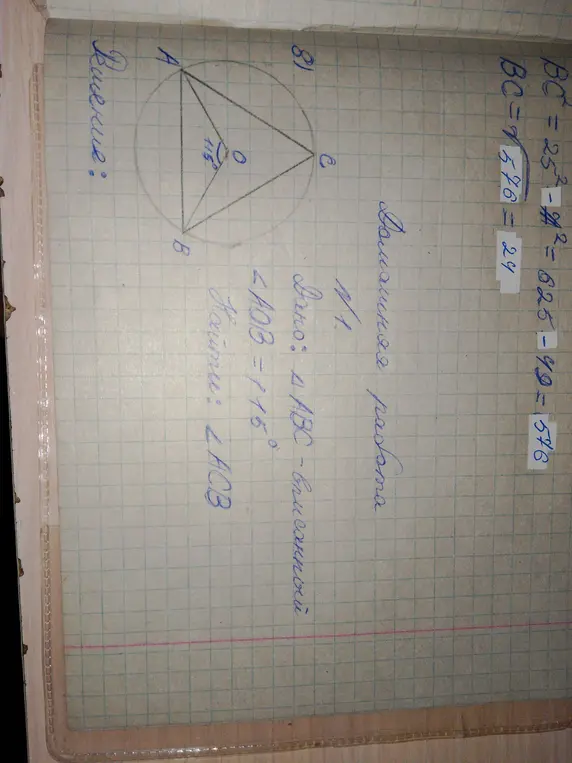 BC² = 25² - 7² = 625 - 49 = 576
BC = √576 = 24
Домашняя работа
N 1.
8)
C
O
115°
A
B
Дано: △ABC - вписанный
∠AOB = 115°
Найти: ∠ACB
Решение: